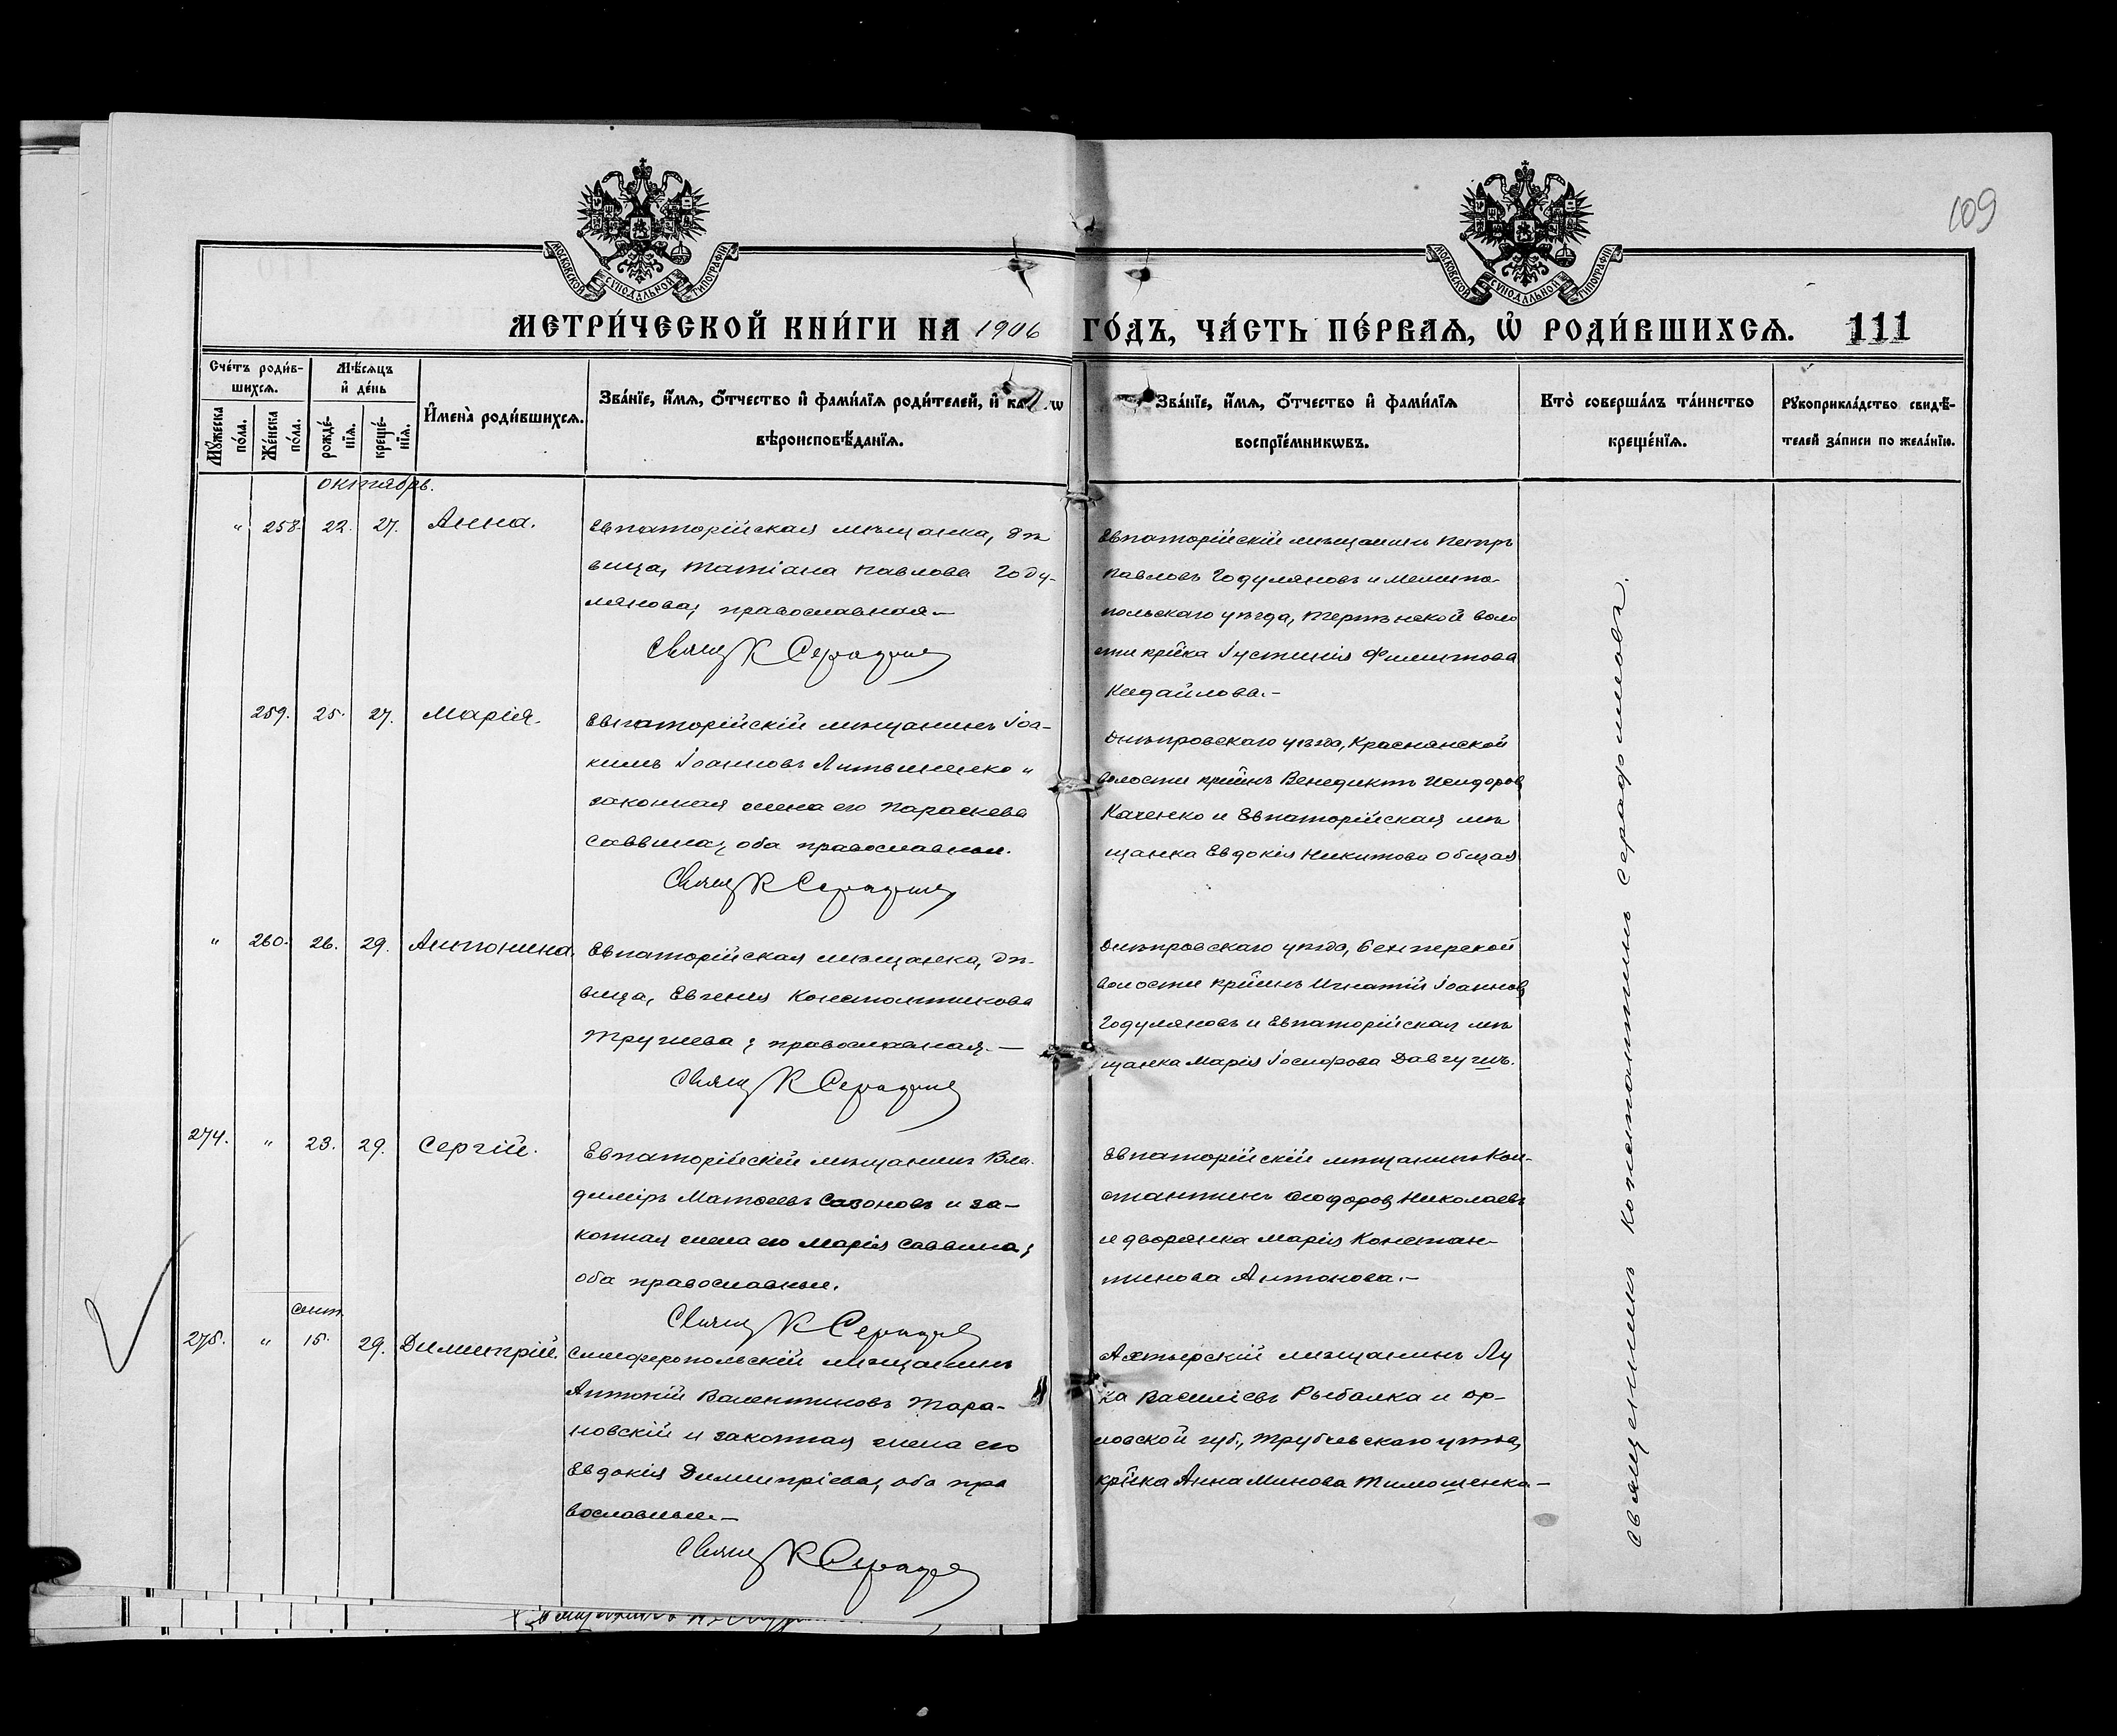 109
МОСКОВСКОЙ СУНОДАЛЬНОЙ ТИПОГРАФІИ
МОСКОВСКОЙ СУНОДАЛЬНОЙ ТИПОГРАФІИ
МЕТРИ́ЧЕСКОЙ КНИ́ГИ НА 1906 ГО́ДЪ, ЧА́СТЬ ПЕ́РВАѦ, Ѡ҆ РОДИ́ВШИХСѦ. 111
Сче́тъ роди́в-
шихсѧ.
Мѣ́сѧцъ
и҆ де́нь
Мꙋ́жеска
по́ла.
Же́нска
по́ла.
рожде́-
нїѧ.
креще́-
нїѧ.
И҆мена̀ роди́вшихсѧ.
Зва́нїе, и҆́мѧ, ѻ҆́тчество и҆ фами́лїѧ роди́телей, и҆
вѣроисповѣ́данїѧ.
Зва́нїе, и҆́мѧ, ѻ҆́тчество и҆ фами́лїѧ
воспрїе́мникѡвъ.
Кто̀ соверша́лъ та́инство
креще́нїѧ.
Рꙋкоприкла́дство свидѣ́-
телей за́писи по жела́нїю.
октябрь.
" 258. 22. 27. Анна.
Евпаторійская мѣщанка, дѣ
вица, Татіана Павлова Году-
лянова, православная.—
Свящ К Серафим
Евпаторійскій мѣщанинъ Петръ
Павловъ Годуляновъ и Мелито-
польскаго уѣзда, воло
сти кр̃ка Іустинія Филиппова
259. 25. 27. Марія.
Евпаторійскій мѣщанинъ Іоа-
кимъ Іоанновъ Литвиненко и
законная жена его Параскева
Саввина, оба православные.
Свящ К Серафим
Днѣпровскаго уѣзда, Краснянской
волости кр̃нинъ Венедиктъ Исидоров
Каченко и Евпаторійская мѣ
щанка Евдокія Никитова Общая
" 260. 26. 29. Антонина.
Евпаторійская мѣщанка, дѣ-
вица, Евгенія Константинова
православная.—
Свящ К Серафим
Днѣпровскаго уѣзда,
волости кр̃нинъ Игнатій Іоаннов
Годуляновъ и Евпаторійская мѣ
щанка Марія Іосифова
274. " 23. 29. Сергій.
Евпаторійскій мѣщанинъ Вла-
димiръ Матѳеевъ Сазоновъ и за-
конная жена его Марія Саввина,
оба православные.
Свящ К Сераф
Евпаторійскій мѣщанинъ Кон-
стантинъ Ѳеодоров Николаевъ
и дворянка Марія Констан-
тинова Антонова.—
сент.
275. " 15. 29. Димитрій.
Симферопольскій мѣщанинъ
Антоній Валентиновъ Тара-
новскій и законная жена его
Евдокія Димитріева, оба пра
вославные.—
Свящ К Сераф
Ахтырскій мѣщанинъ Лу
ка Василіевъ Рыбалка и Ор-
ловской губ., Трубчевскаго уѣзда,
кр̃нка Анна Минова Тимошенко—
священникъ Константинъ Серафимовъ.